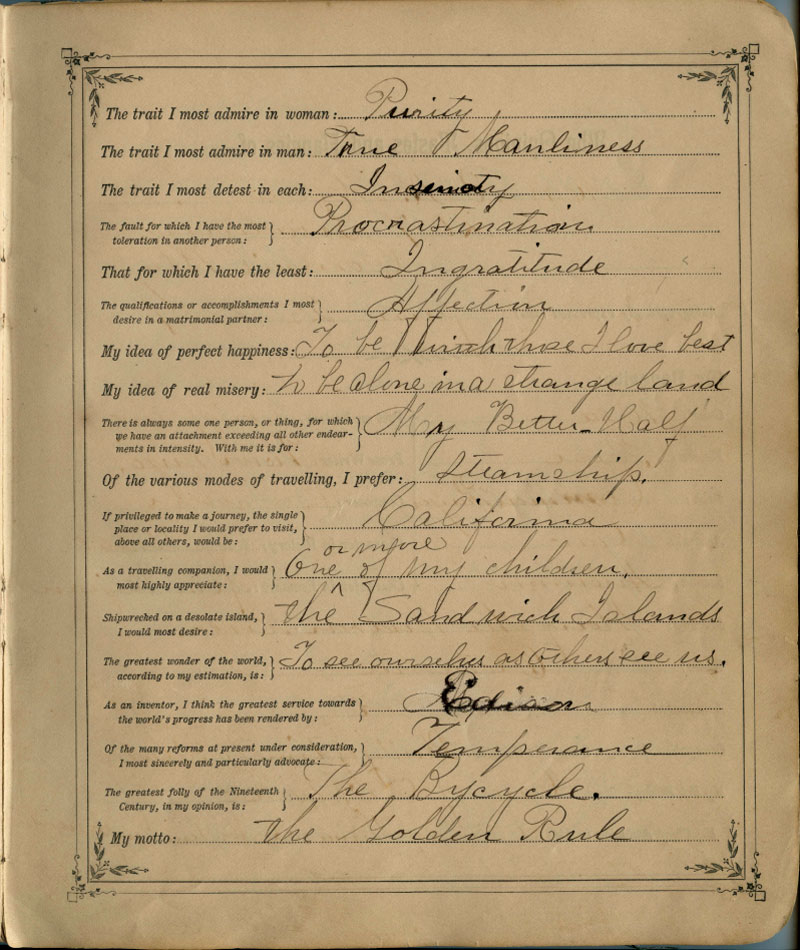 The trait I most admire in woman: Purity
The trait I most admire in man: True Manliness
The trait I most detest in each:
The fault for which I have the most
toleration in another person: Procrastination
That for which I have the least: Ingratitude
The qualifications or accomplishments I most
desire in a matrimonial partner: Affection
My idea of perfect happiness: To be with those I love best
My idea of real misery: to be alone in a strange land
There is always some one person, or thing, for which
we have an attachment exceeding all other endear-
ments in intensity. With me it is for: My Better-Half
Of the various modes of travelling, I prefer: Steamship.
If privileged to make a journey, the single
place or locality I would prefer to visit,
above all others, would be: California
or more
As a travelling companion, I would
most highly appreciate: One ^ of my children.
Shipwrecked on a desolate island,
I would most desire: the Sandwich Islands
The greatest wonder of the world,
according to my estimation, is: To see ourselves as others see us.
As an inventor, I think the greatest service towards
the world's progress has been rendered by: Edison
Of the many reforms at present under consideration,
I most sincerely and particularly advocate: Temperance
The greatest folly of the Nineteenth
Century, in my opinion, is: The Bycycle.
My motto: the Golden Rule